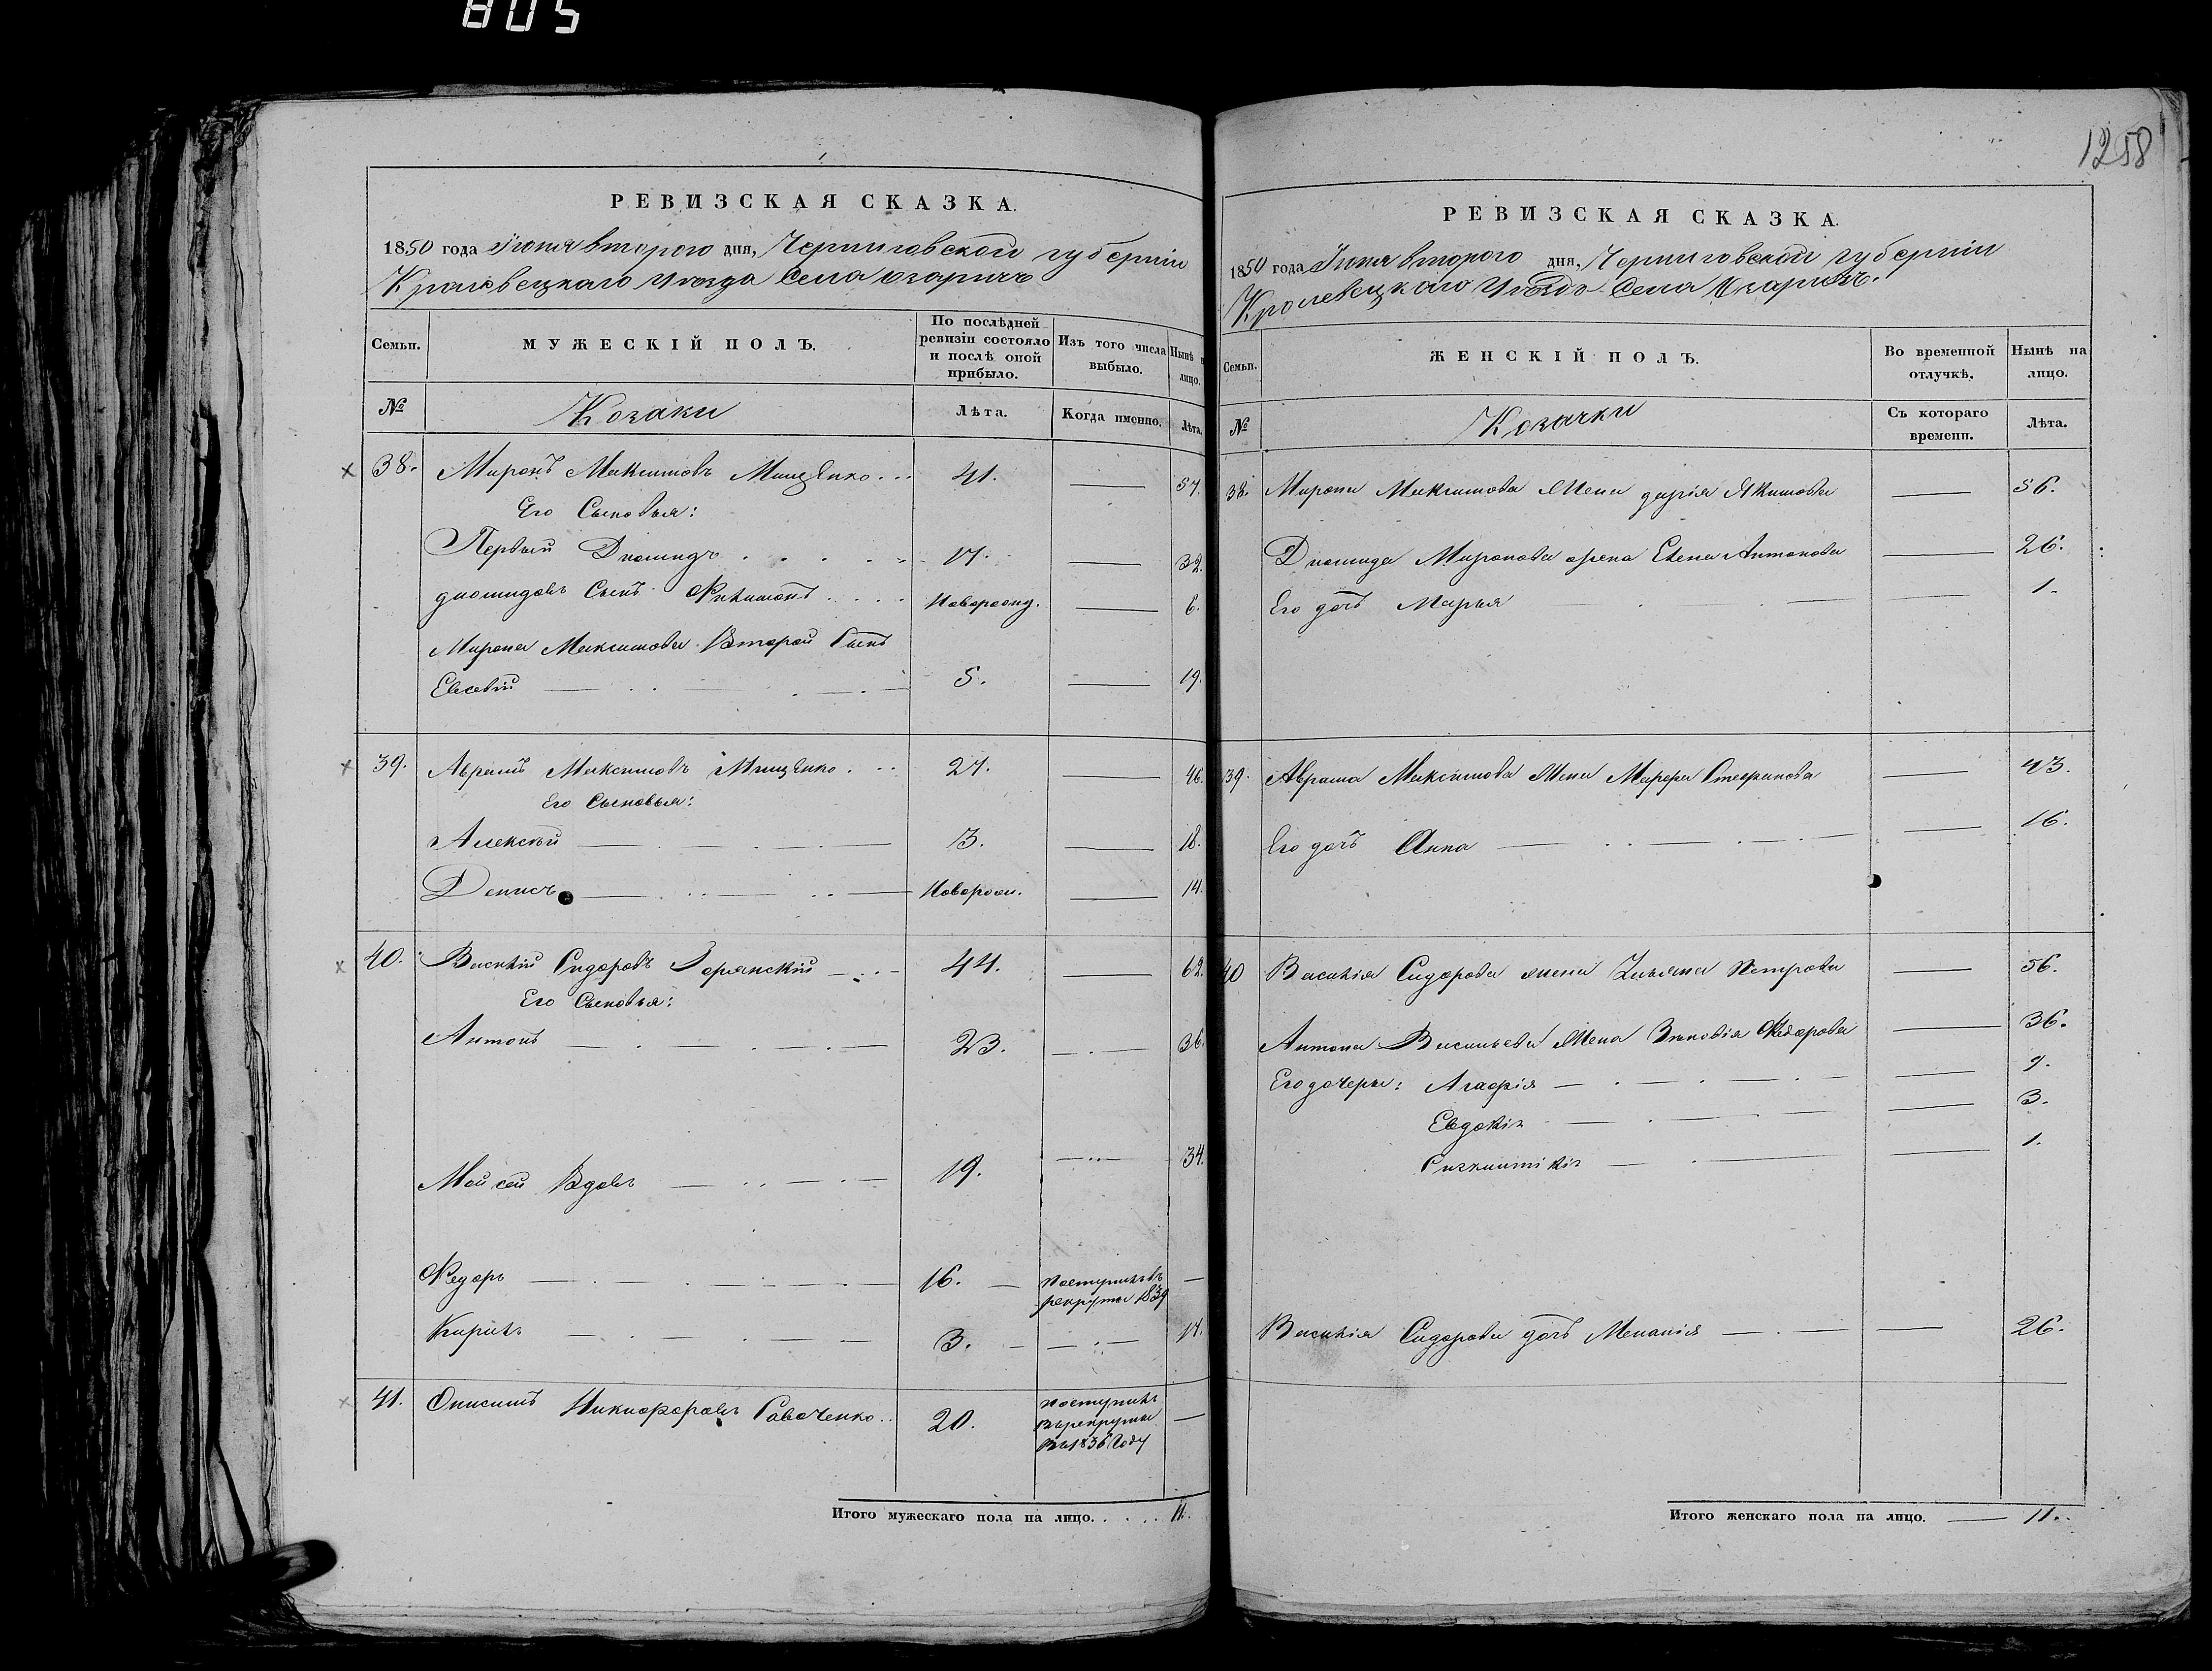 805
1258
РЕВИЗСКАЯ СКАЗКА.
1850 года Іюня второго дня, Черниговской губерніи
Кролевецкаго уѣзда Села
Семьи.
МУЖЕСКІЙ ПОЛЪ.
По послѣдней ревизіи состояло и послѣ оной прибыло.
Изъ того числа выбыло.
Нынѣ на лицо.
№
Козаки
Лѣта.
Когда именно.
Лѣта.
38. Миронъ Максимовъ Мищенко 41. 57.
Его Сыновья:
Первый Диомидъ 17. 32.
диомидовъ Сынъ Филимонъ Новорожд. 6.
Мирона Максимова Второй Сынъ
Евсевій 5. 19.
39. Аврамъ Максимовъ Мищенко 27. 46.
Его Сыновья:
Алексѣй 3. 18.
Денисъ Новорож. 14.
40. Василій Сидоровъ 44. 62.
Его Сыновья:
Антонъ 23. 36.
Мойсей Вдовъ 19. 34.
Федоръ 16. поступилъ въ
рекруты 1839
Кирилъ 3. 17.
41. Онисимъ Никифоровъ Савченко 20. поступилъ
въ рекруты
въ 1836 Году
Итого мужескаго пола на лицо. 11.
РЕВИЗСКАЯ СКАЗКА.
1850 года Іюня второго дня, Черниговской губерніи
Кролевецкаго уѣзда Села
Семьи.
ЖЕНСКІЙ ПОЛЪ.
Во временной отлучкѣ.
Нынѣ на лицо.
№
Козачки
Съ котораго времени.
Лѣта.
38. Мирона Максимова Жена дарія Якимова 56.
Диомида Миронова жена Елена Антонова 26.
Его дочь Марья 1.
39. Аврама Максимова Жена Марфа Стефанова 43.
Его дочь Анна 16.
40 Василія Сидорова жена Ульяна Петрова 56.
Антона Васильева Жена Зиновія Федорова 36.
Его дочери: Агафія 7.
Евдокія 3.
1.
Василія Сидорова дочь Меланія 26.
Итого женскаго пола на лицо. 11.